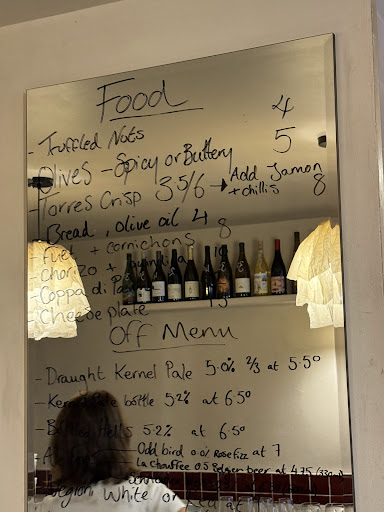 Food
- Truffled Nots 4
- Olives - Spicy or Buttery 5
- Torres Crisp 3.5/6 → Add Jamon + chillis 8
- Bread, olive oil 4
- Fuet + cornichons 8
- Chorizo +
- Coppa di
- Cheese plate 15
Off Menu
- Draught Kernel Pale 5.0% 2/3 at 5.50
- Kernel bottle 5.2% at 6.50
- 5.2% at 6.50
Odd bird 0.0% Rose fizz at 7
La Chouffee 0.5 Belger beer at 4.75 (330ml)
White or Red at